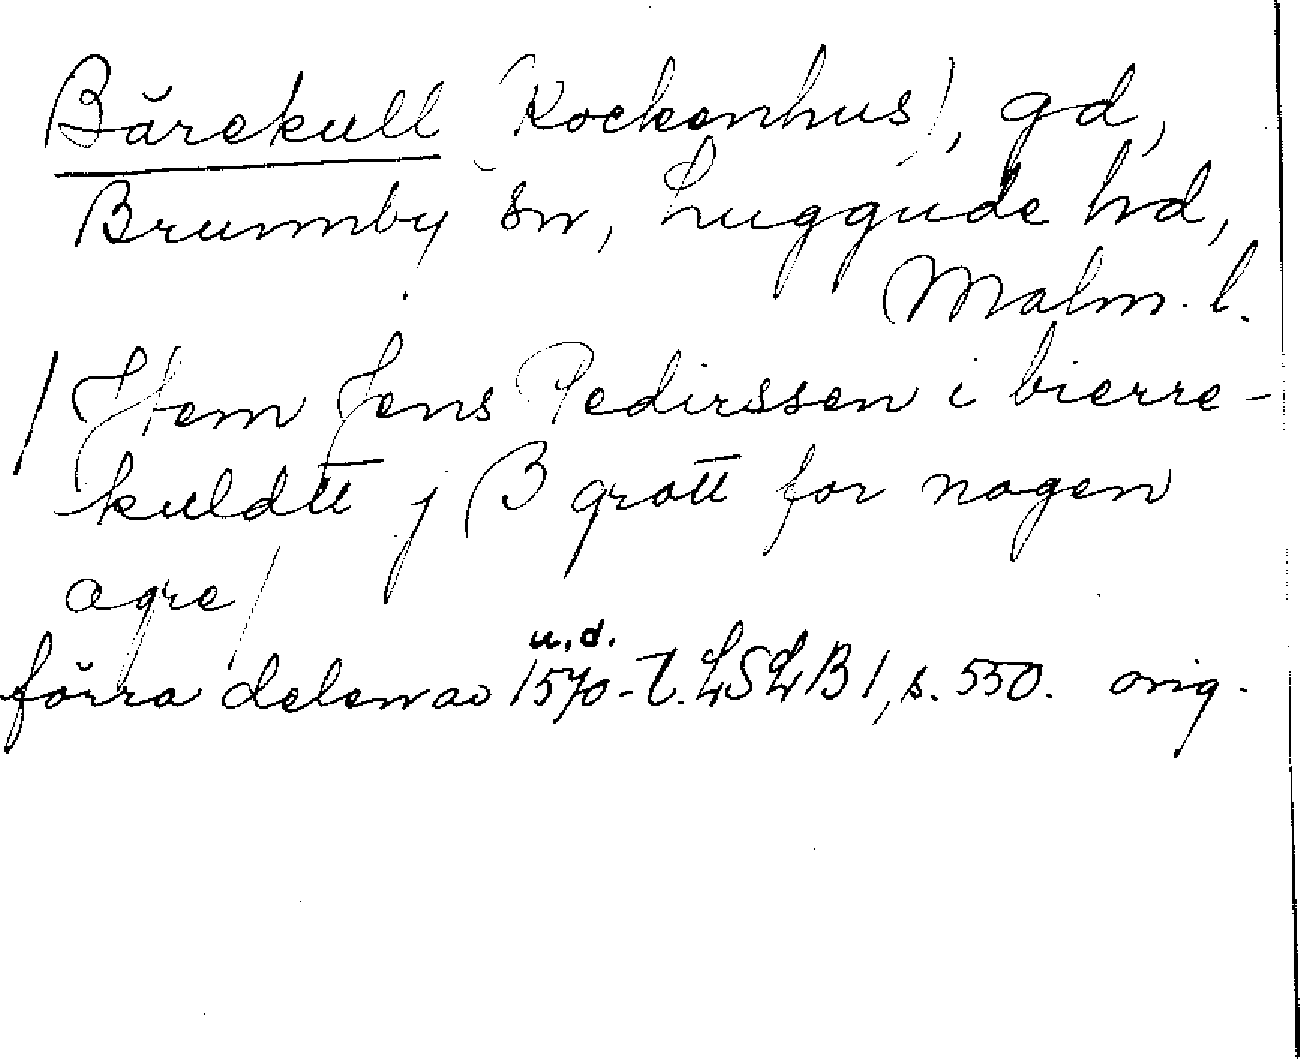 Bärekull (Kockenhus), gd,
Brunnby sn, Luggude hd,
Malm. l.
/Jtem Jens Pedirssen i bierre-
kuldtt j β grott for nogen
agre/
förra delen av 1570-t. LSLB 1, s. 550. orig.
u.d.